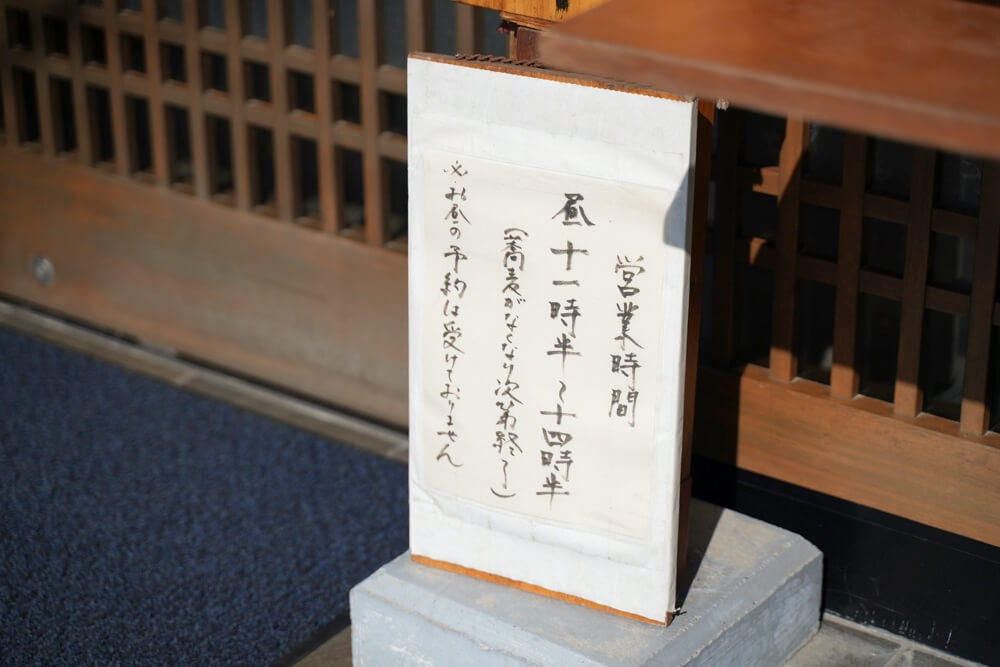 営業時間
昼 十一時半〜十四時半
(蕎麦がなくなり次第終了)
※お昼の予約は受けておりません